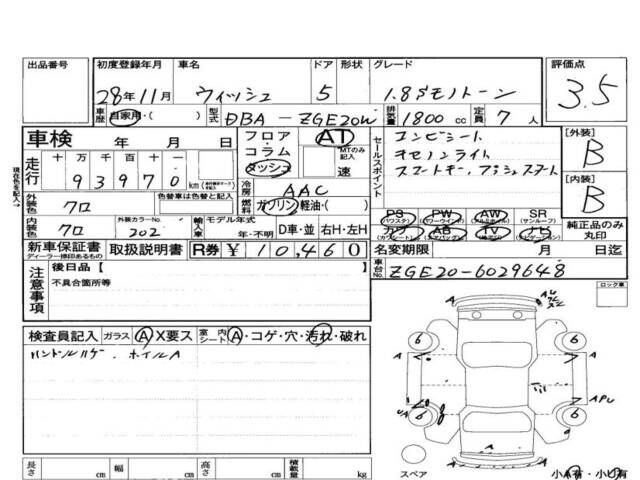 出品番号 初度登録年月 車名 ドア 形状 グレード 評価点
28年11月 ウィッシュ 5 1.8Sモノトーン 3.5
車歴 自家用・( ) 型式 DBA-ZGE20W 排気量 1800 cc 定員 7 人
車検 年 月 日 フロア・コラム ダッシュ AT MTのみ記入 速
セールスポイント コンビシート
キセノンライト
スマートキー、プッシュスタート
[外装] B
[内装] B
現在色を記入→
走行 十万千百十 93970 km
冷房 AAC
燃料 ガソリン 軽油・( )
外装色 クロ 色替車は色替と記入
内装色 クロ 外装カラーNo. 202 輸入車 モデル年式 年・不明 D車・並 右H・左H
PS (パワステ) PW (パワーウインド) AW (アルミホイール) SR (サンルーフ)
カワ AB (エアバッグ) TV ナビ (ナビゲーション)
純正品のみ丸印
新車保証書 ディーラー捺印あるもの 取扱説明書 R券 ¥10,460
名変期限 月 日迄
車台No. ZGE20-6029648
注意事項 後日品 [ ]
不具合箇所等
ロック車
検査員記入 ガラス A・X要ス 室内シート A・コゲ・穴・汚れ・破れ
ハンドルハゲ. ホイルA
A
A
A
APU
UA
A
A
6
6
6
6
スペア
小A有・小U有
長さ cm 幅 cm 高さ cm 積載量 kg